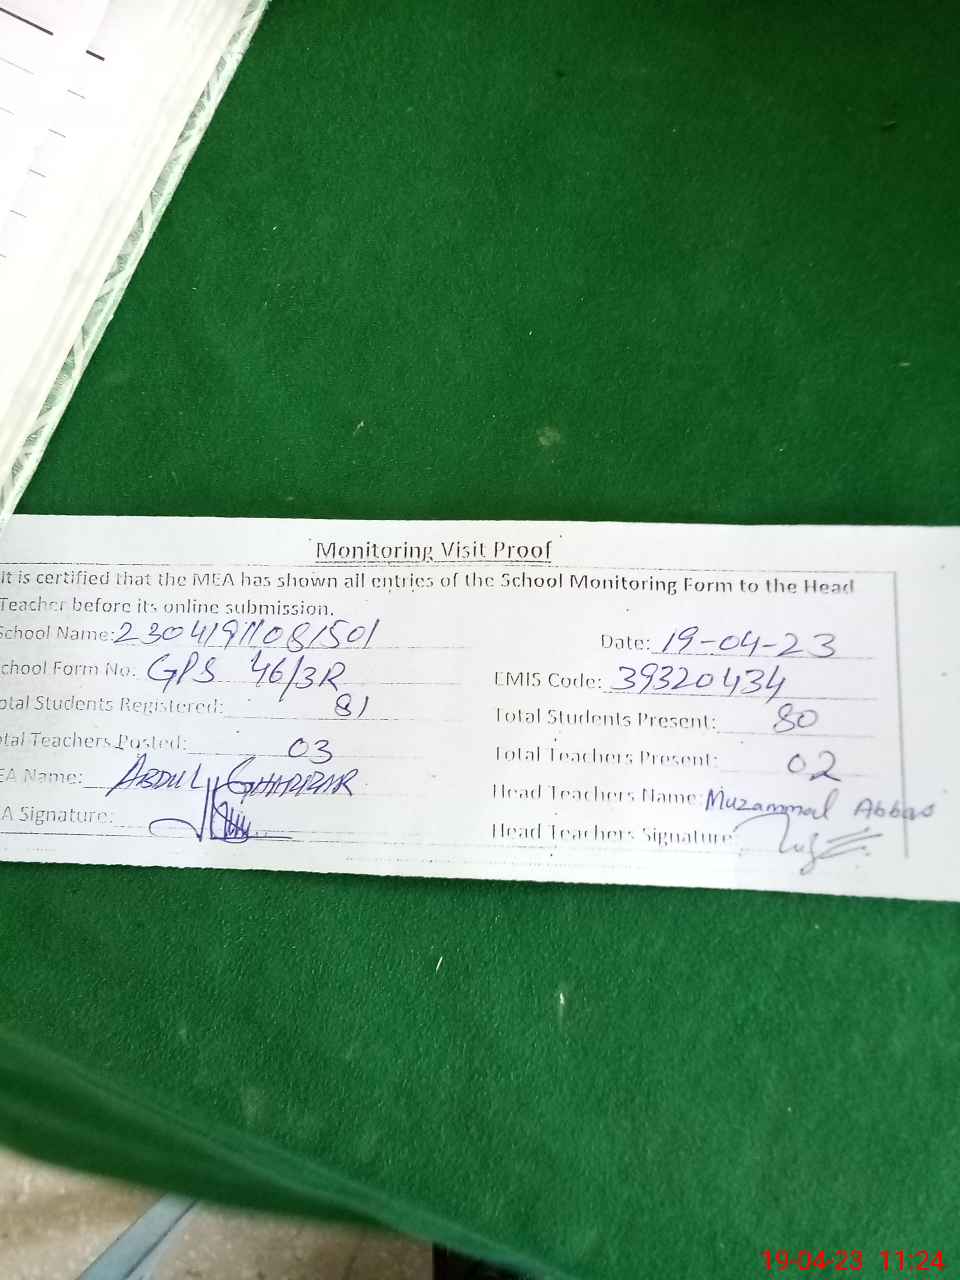 Monitoring Visit Proof
It is certified that the MEA has shown all entries of the School Monitoring Form to the Head
Teacher before its online submission.
School Name: 23041911081501 Date: 19-04-23
chool Form No: GPS 46/3R EMIS Code: 39320434
otal Students Registered: 81 Total Students Present: 80
tal Teachers Posted: 03 Total Teachers Present: 02
EA Name: ABDUL GHAFFAR Head Teachers Name: Muzammal Abbas
A Signature: Head Teachers Signature:
19-04-23 11:24